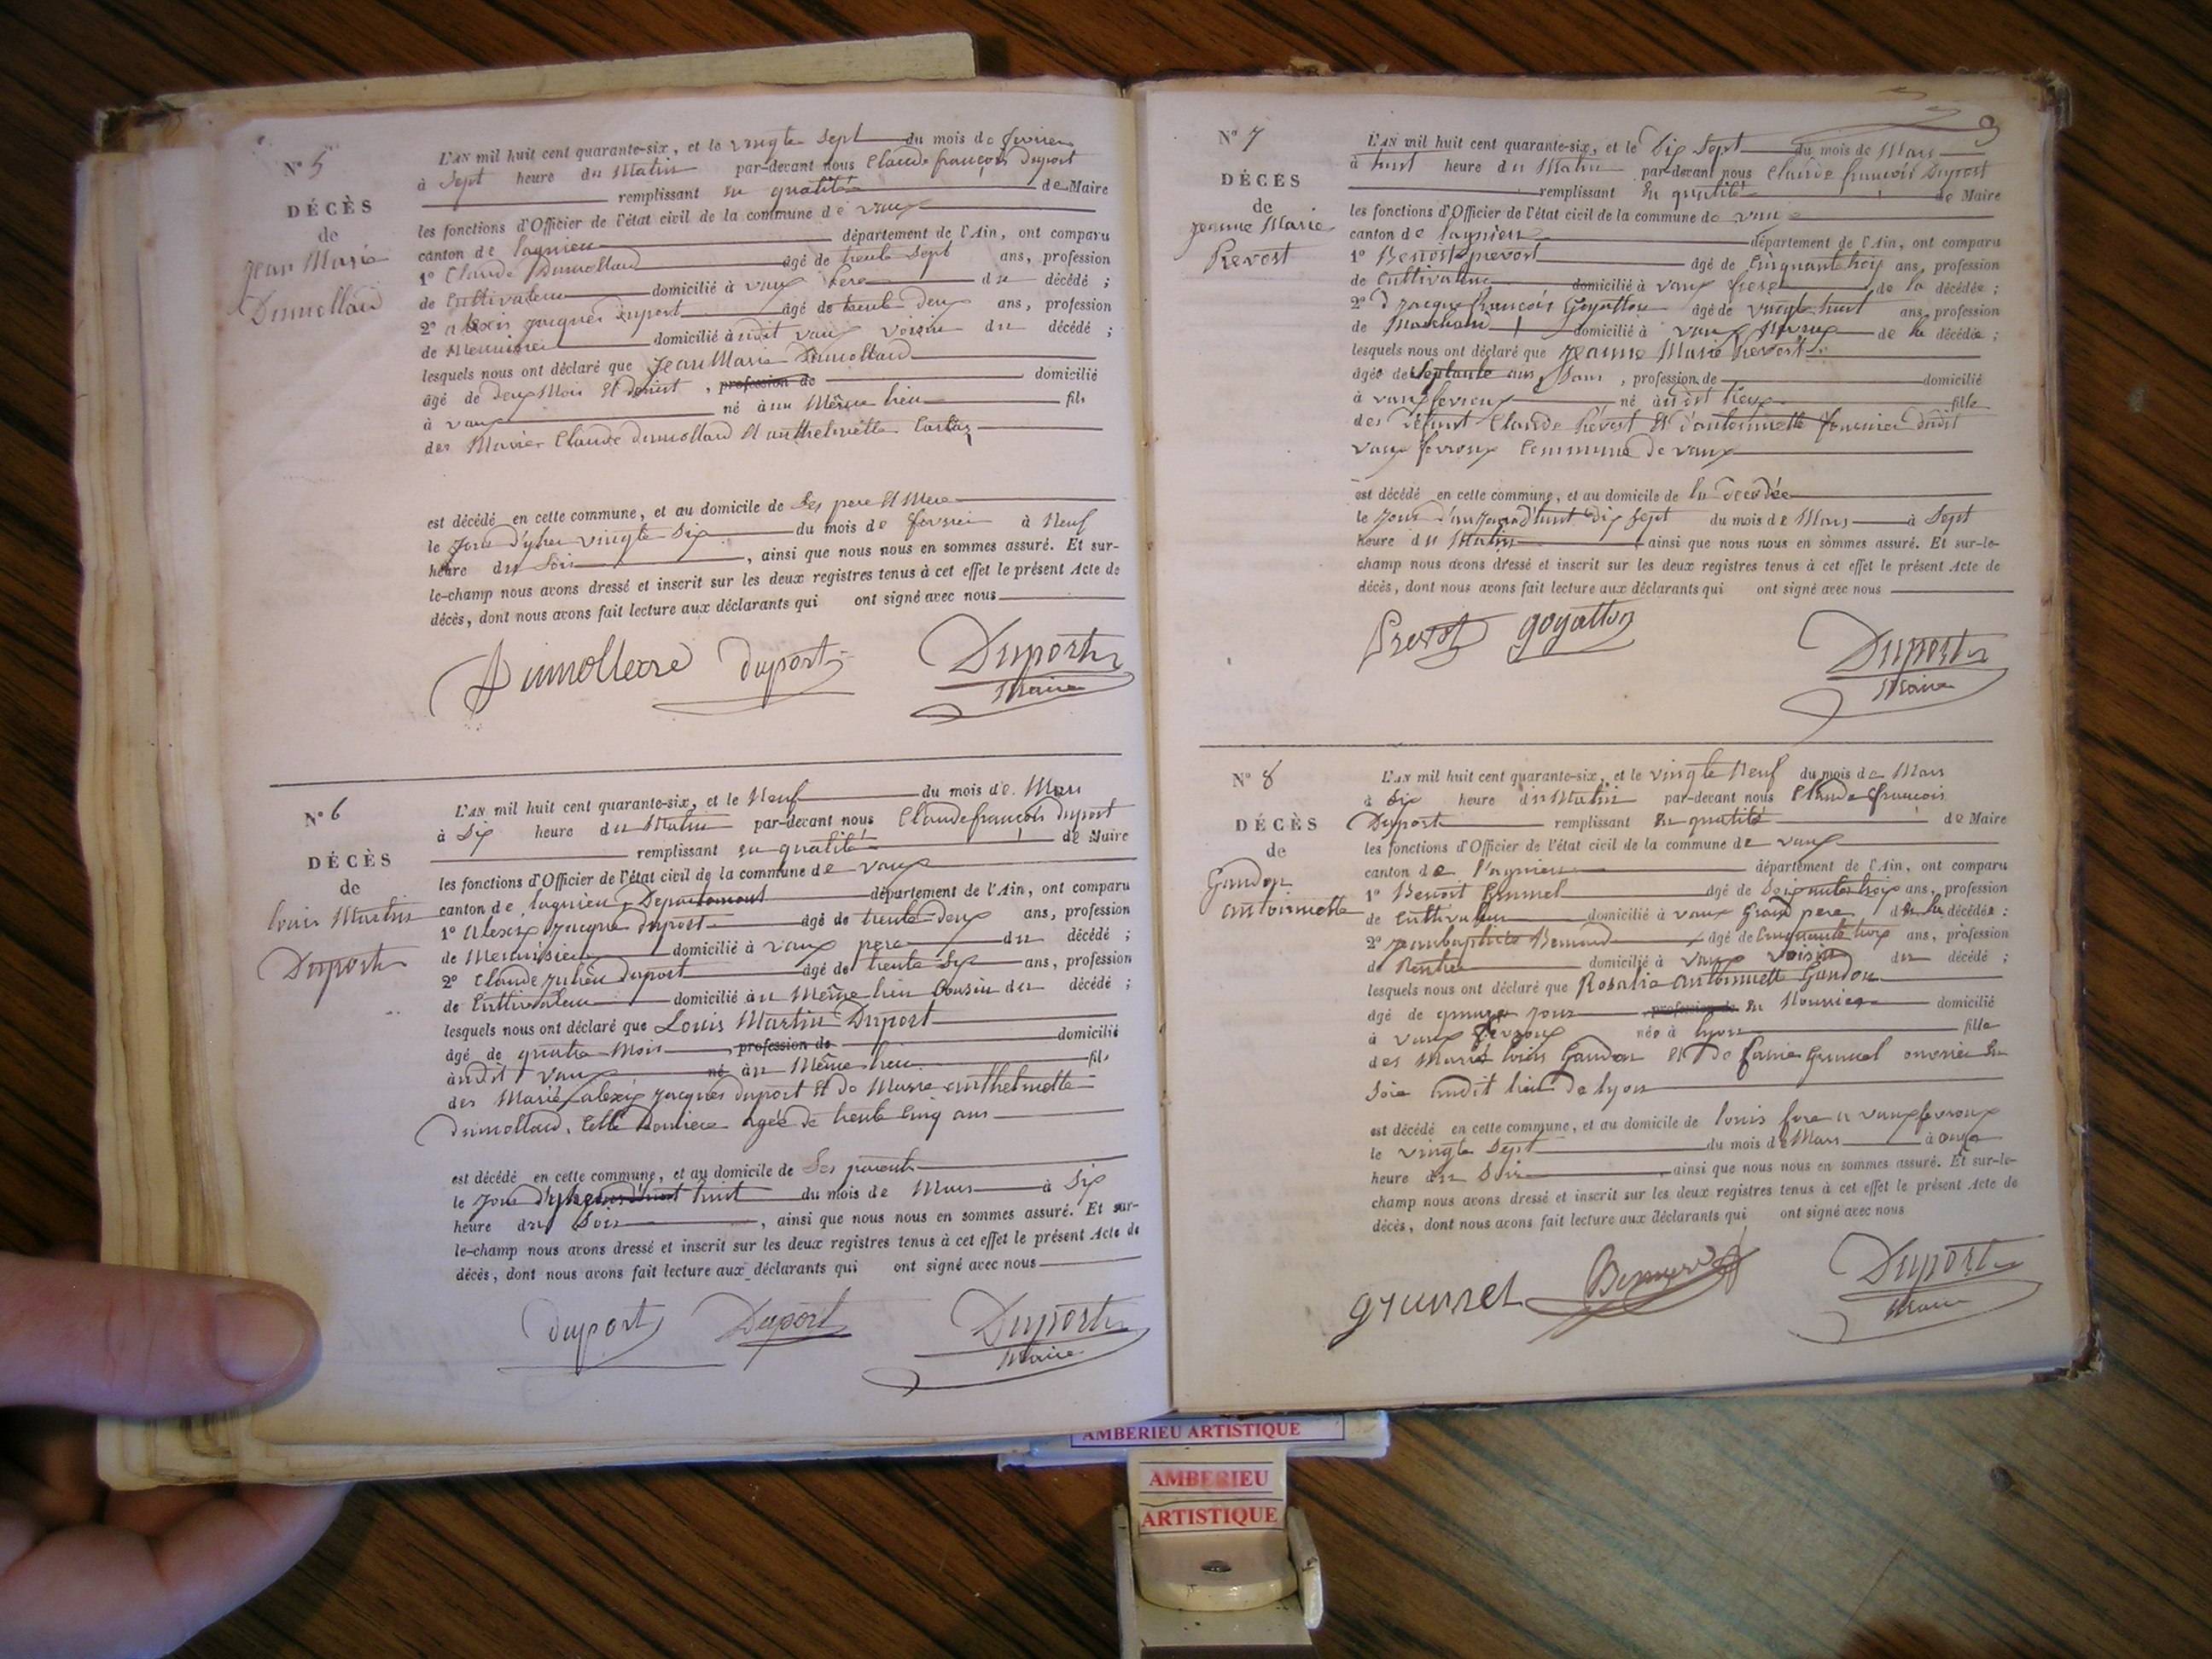 N° 5
DÉCÈS
de
Jean Marie
Dumollard
L'AN mil huit cent quarante-six, et le vingte sept du mois de fevrier
à Sept heure du Matin par-devant nous Claude françois Duport
remplissant en qualité de Maire
les fonctions d'Officier de l'état civil de la commune de vaux
canton de lagnieu département de l'Ain, ont comparu
1° Claude Dumollard âgé de trente Sept ans, profession
de Cultivateur domicilié à vaux pere du décédé ;
2° alexis jacques Duport âgé de trente deux ans, profession
de Menuisier domicilié à udit vaux voisin du décédé ;
lesquels nous ont déclaré que Jean Marie Dumollard
âgé de deux Mois et demit , profession de domicilié
à vaux né à au Même lieu fils
des Mariés Claude dumollard et anthelmette
est décédé en cette commune, et au domicile de Ses pere et Mere
le Jour d'yher vingte Six du mois de fevrier à Neuf
heure du Soir , ainsi que nous nous en sommes assuré. Et sur-
le-champ nous avons dressé et inscrit sur les deux registres tenus à cet effet le présent Acte de
décès, dont nous avons fait lecture aux déclarants qui ont signé avec nous
duport Duport
Maire
N° 6
DÉCÈS
de
louis Martin
Duport
L'AN mil huit cent quarante-six, et le Neuf du mois de Mars
à Six heure du Matin par-devant nous Claude françois Duport
remplissant en qualité de Maire
les fonctions d'Officier de l'état civil de la commune de vaux
canton de lagnieu Departement département de l'Ain, ont comparu
1° Alexis jacque duport âgé de trente deux ans, profession
de Menuisier domicilié à vaux pere du décédé ;
2° Claude julien duport âgé de trente Six ans, profession
de Cultivateur domicilié à u Même lieu Cousin du décédé ;
lesquels nous ont déclaré que Louis Martin Duport
âgé de quatre Mois , profession de domicilié
à udit vaux né à u Même lieu fils
des Mariés alexis jacques duport et de Marie anthelmette
dumollard, Cette derniere agée de trente Cinq ans
est décédé en cette commune, et au domicile de Ses parents
le Jour d'yher huit du mois de Mars à Six
heure du Soir , ainsi que nous nous en sommes assuré. Et sur-
le-champ nous avons dressé et inscrit sur les deux registres tenus à cet effet le présent Acte de
décès, dont nous avons fait lecture aux déclarants qui ont signé avec nous
duport Duport Duport
Maire
9
N° 7
DÉCÈS
de
jeanne Marie
Prevost
L'AN mil huit cent quarante-six, et le Dix Sept du mois de Mars
à huit heure du Matin par-devant nous Claude françois Duport
remplissant en qualité de Maire
les fonctions d'Officier de l'état civil de la commune de vaux
canton de lagnieu département de l'Ain, ont comparu
1° Benoit prevost âgé de Cinquante trois ans, profession
de Cultivateur domicilié à vaux frere de la décédée ;
2° jacque françois Goyatton âgé de vingte huit ans, profession
de Marchand domicilié à vaux Neveux de la décédée ;
lesquels nous ont déclaré que Jeanne Marie Prevost
âgée de Septante ans , Sans , profession de domicilié
à vaux fevroux né à udit lieux fille
des defunt Claude Prevost et d'antoinnette fournier dudit
vaux fevroux Commune de vaux
est décédé en cette commune, et au domicile de la decedée
le Jour d'aujourd'huit dix Sept du mois de Mars à Sept
heure du Matin , ainsi que nous nous en sommes assuré. Et sur-le-
champ nous avons dressé et inscrit sur les deux registres tenus à cet effet le présent Acte de
décès, dont nous avons fait lecture aux déclarants qui ont signé avec nous
Prevost goyatton Duport
Maire
N° 8
DÉCÈS
de
Gandon
antoinnette
L'AN mil huit cent quarante-six, et le vingte Neuf du mois de Mars
à Six heure du Matin par-devant nous Claude françois
Duport remplissant en qualité de Maire
les fonctions d'Officier de l'état civil de la commune de vaux
canton de lagnieu département de l'Ain, ont comparu
1° Benoit Grumel âgé de Soixante trois ans, profession
de Cultivateur domicilié à vaux Grand pere de la décédée ;
2° jeanbaptiste Bernard âgé de Cinquante trois ans, profession
de Rentier domicilié à vaux voisin du décédé ;
lesquels nous ont déclaré que Rosalie antoinnette Gandon
âgé de jours profession de en Nourrice domicilié
à vaux fevroux née à lyon fille
des Mariés louis Gandon et de Grumel ouvrier en
Soie audit lieu de lyon
est décédé en cette commune, et au domicile de louis a vaux fevroux
le vingte Sept du mois de Mars à onze
heure du Soir , ainsi que nous nous en sommes assuré. Et sur-le-
champ nous avons dressé et inscrit sur les deux registres tenus à cet effet le présent Acte de
décès, dont nous avons fait lecture aux déclarants qui ont signé avec nous
Duport
Maire
AMBERIEU ARTISTIQUE
AMBERIEU
ARTISTIQUE